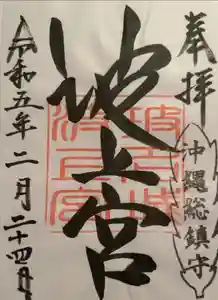 奉拝
沖縄総鎮守
波上宮
令和五年二月二十四日